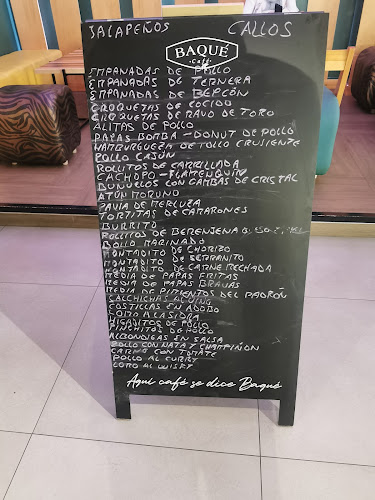 JALAPEÑOS CALLOS
BAQUÉ
Café
EMPANADAS DE POLLO
EMPANADAS DE TERNERA
EMPANADAS DE BEPCÓN
CROQUETAS DE COCIDO
CROQUETAS DE RAVO DE TORO
ALITAS DE POLLO
PAPAS BOMBA - DONUT DE POLLO
HAMBURGUEZA DE POLLO CRUSIENTE
POLLO CAJÚN
ROLLITOS DE CARRILLADA
CACHOPO - FLAMENQUÍN
BUÑUELOS CON GAMBAS DE CRISTAL
ATÚN MORUNO
PAVIA DE MERLUZA
TORTITAS DE CAMARONES
BURRITO
ROLLITOS DE BERENJENA
BOLLO MARINADO
MONTADITO DE CHORIZO
MONTADITO DE SERRANITO
MONTADITO DE CARNE MECHADA
MEDIA DE PAPAS FRITAS
MEDIA DE PAPAS BRAVAS
MEDIA DE PIMIENTOS DEL PADRÓN
SALCHICHAS AL VINO
COSTILLAS EN ADOBO
LOMO A LA SIDRA
HIGADITOS DE POLLO
PINCHITOS DE POLLO
ALBONDIGAS EN SALSA
POLLO CON NATA Y CHAMPIÑON
CARNE CON TOMATE
POLLO AL CURRY
LOMO AL WISKY
Aquí café se dice Baqué